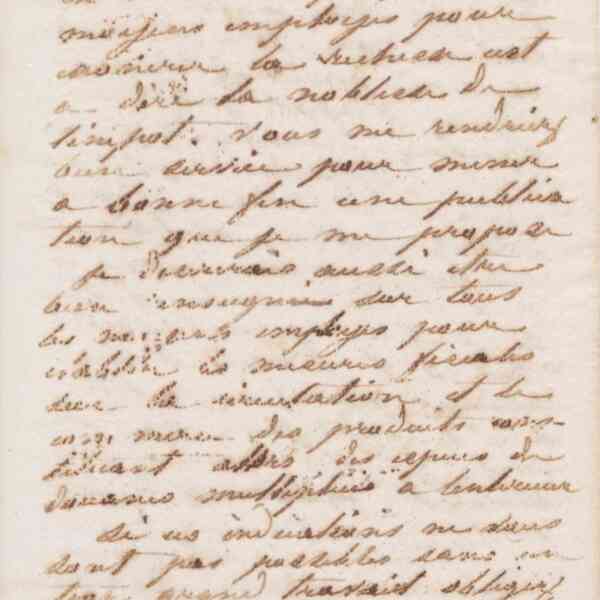 moyens employés pour
la richesse est
a dire la noblesse de
l'impot. Vous me rendriez
bien service pour mener
a bonne fin une publica
tion que je me propose
je desirerais aussi etre
bien renseigné sur tous
les moyens employés pour
établir les mesures fiscales
sur la circulation et le
commerce des produits cons-
tituant alors des especes de
douanes multipliées a l'interieur
si ces indications ne vous
sont pas possibles sans un
trop grand travail obligez